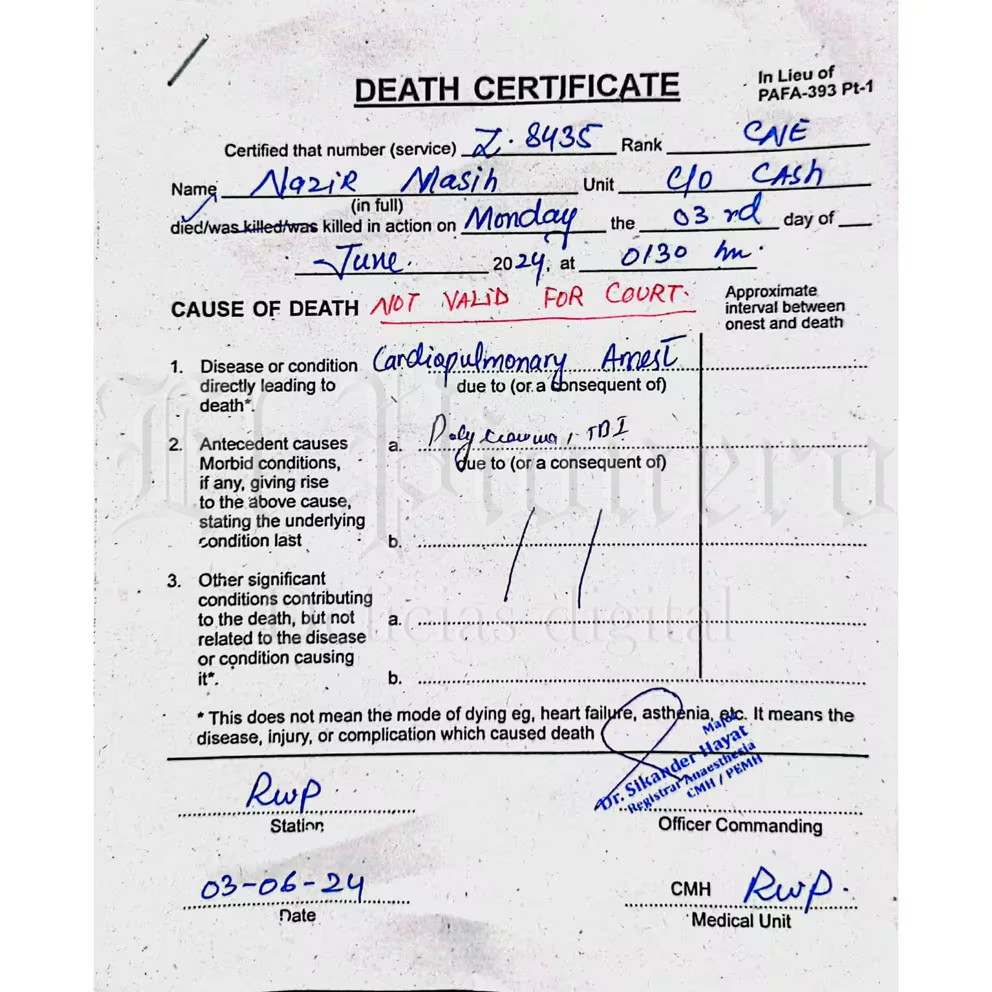 DEATH CERTIFICATE
In Lieu of
PAFA-393 Pt-1
Certified that number (service) Z. 8435 Rank CNE
Name Nazir Masih Unit C/O CASH
(in full)
died/was killed/was killed in action on Monday the 03 rd day of
June. 2024, at 0130 hr.
CAUSE OF DEATH NOT VALID FOR COURT.
Approximate
interval between
onest and death
1. Disease or condition
directly leading to
death*.
Cardiopulmonary Arrest
due to (or a consequent of)
2. Antecedent causes
Morbid conditions,
if any, giving rise
to the above cause,
stating the underlying
condition last
a. Polytrauma, TBI
due to (or a consequent of)
b.
3. Other significant
conditions contributing
to the death, but not
related to the disease
or condition causing
it*.
a.
b.
El Pionero
Delicias digital
* This does not mean the mode of dying eg, heart failure, asthenia, etc. It means the
disease, injury, or complication which caused death
Major
Dr. Sikander Hayat
Registrar Anaesthesia
CMH / PEMH
RWP
Station
Officer Commanding
03-06-24
Date
CMH RWP.
Medical Unit